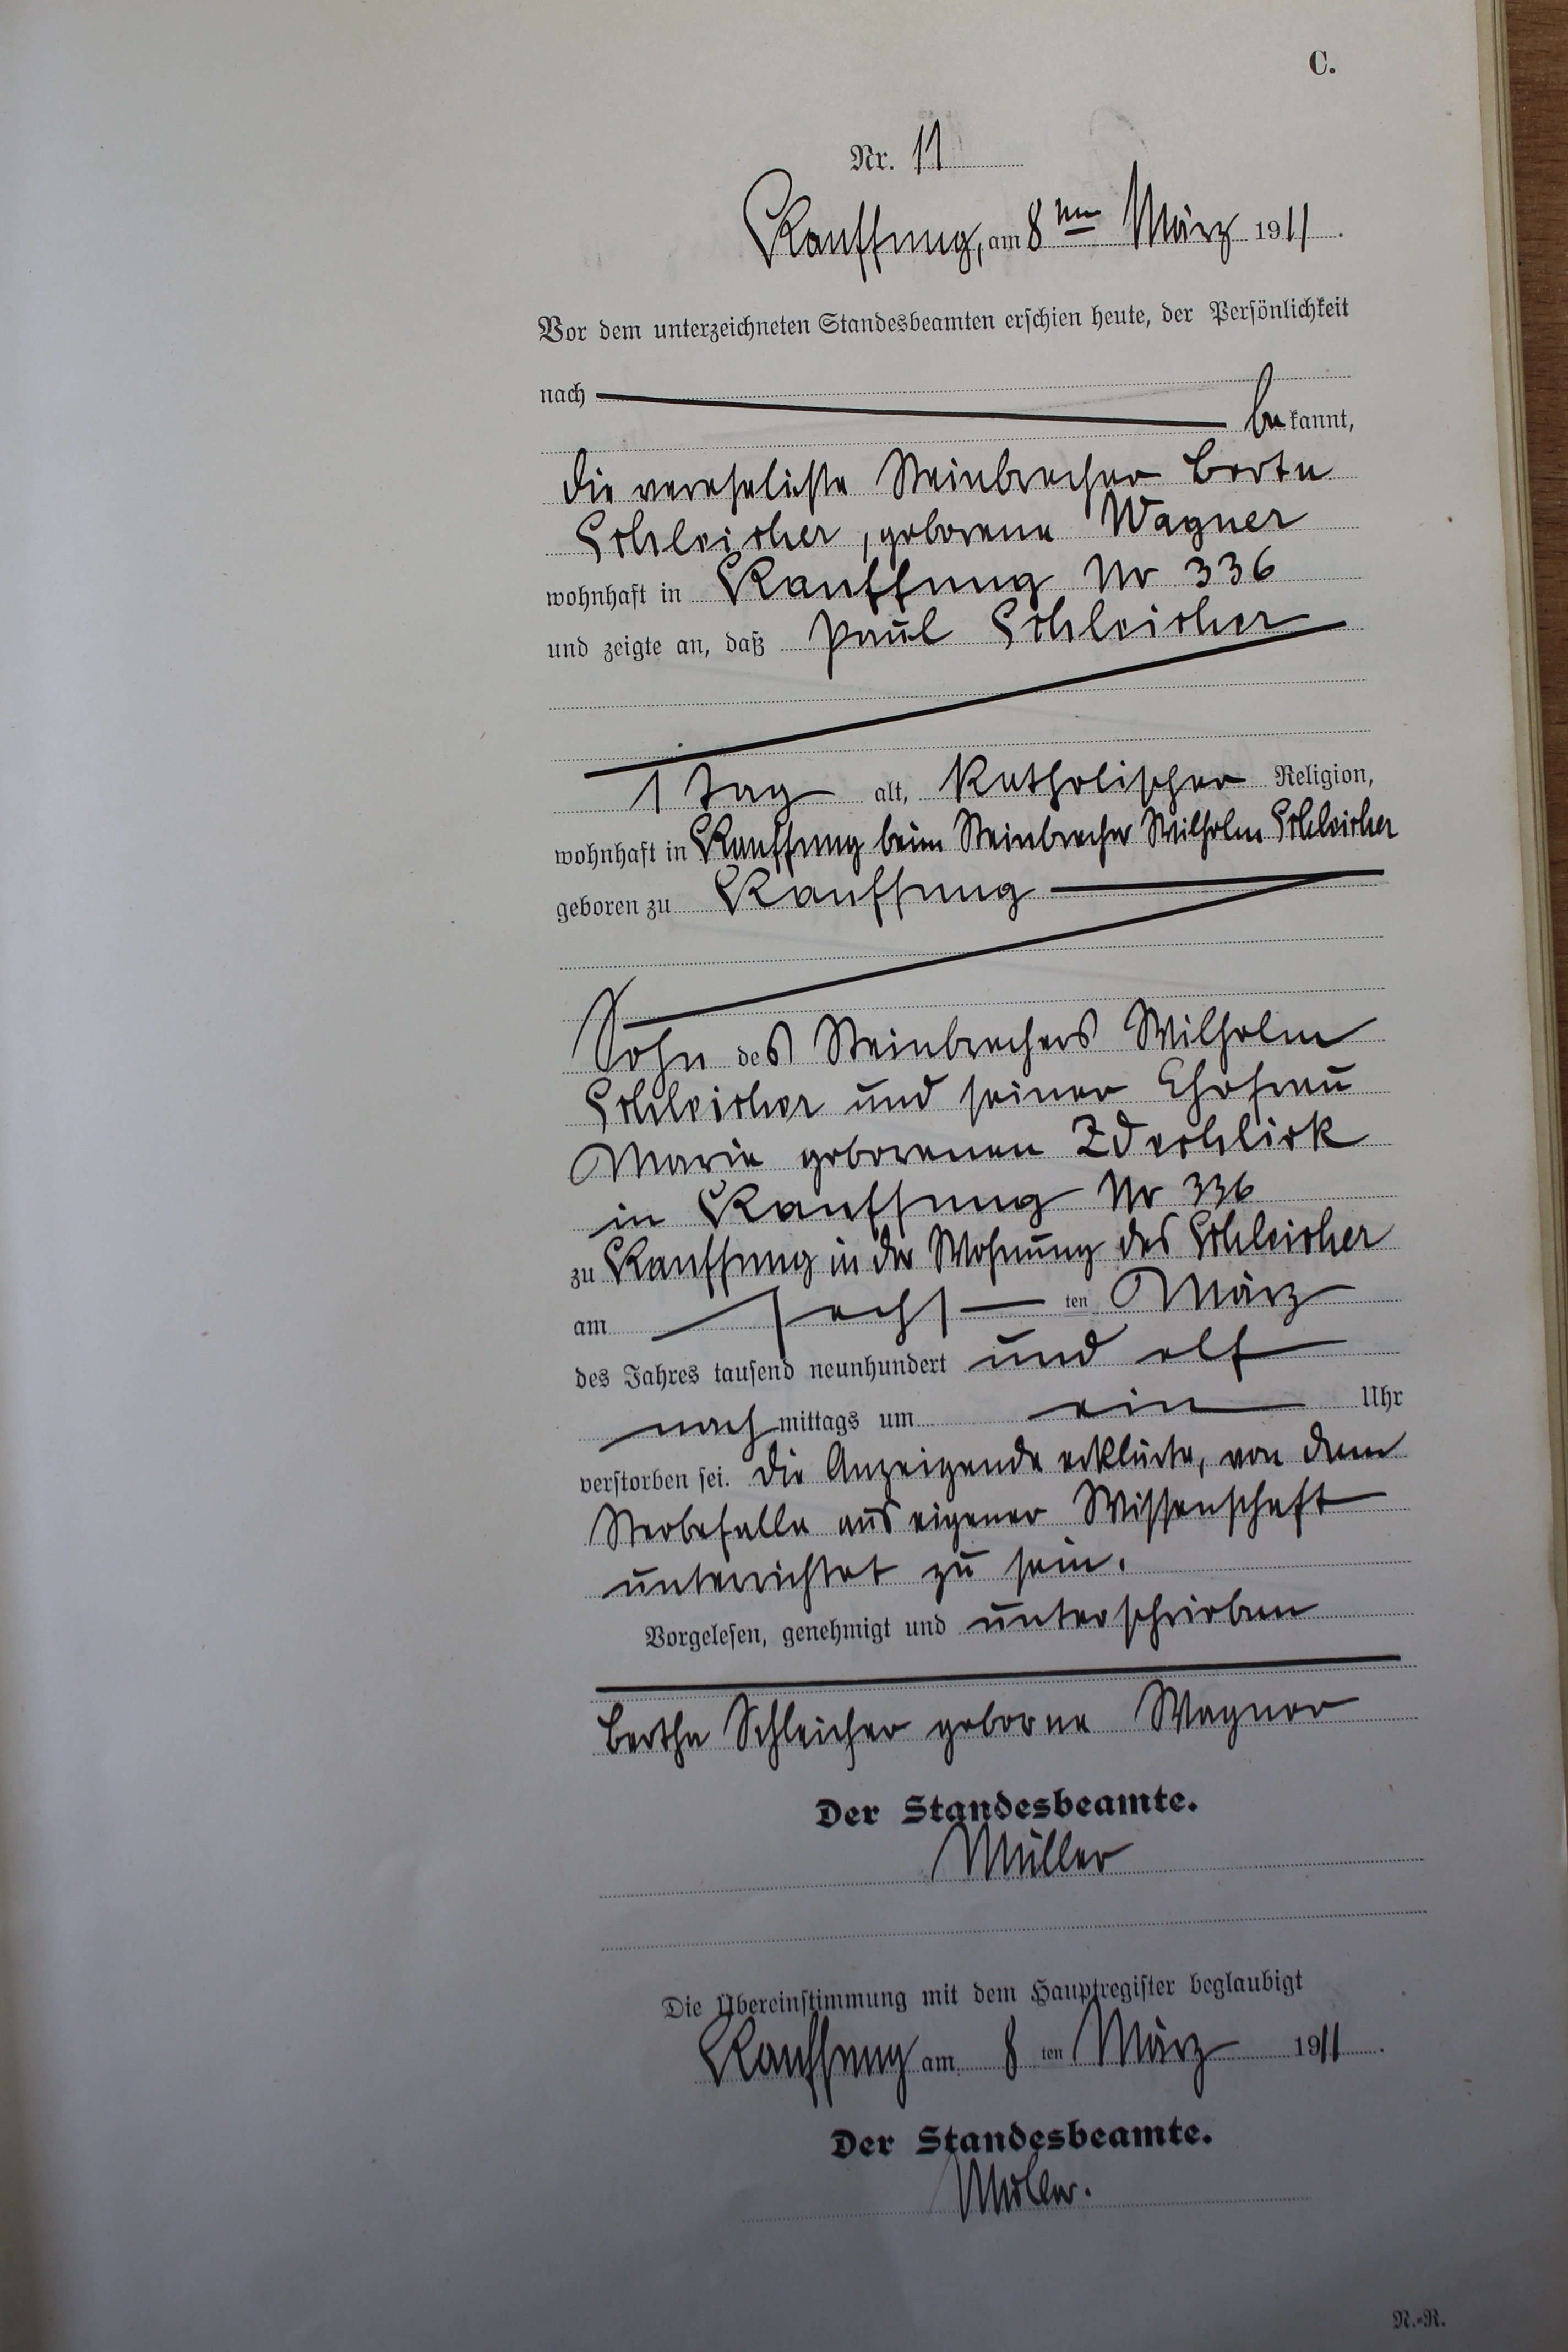 C.
Nr. 11
Kauffung, am 8ten März 1911.
Vor dem unterzeichneten Standesbeamten erschien heute, der Persönlichkeit
nach
bekannt,
die verehelichte Steinbrecher Berta
Schleicher, geborene Wagner
wohnhaft in Kauffung Nr 336
und zeigte an, daß Paul Schleicher
1 Tag alt, katholischer Religion,
wohnhaft in Kauffung beim Steinbrecher Wilhelm Schleicher
geboren zu Kauffung
Sohn des Steinbrechers Wilhelm
Schleicher und seiner Ehefrau
Marie geborenen
in Kauffung Nr 336
zu Kauffung in der Wohnung des Schleicher
am sechsten März
des Jahres tausend neunhundert und elf
nachmittags um ein Uhr
verstorben sei. Die Anzeigende erklärte, von dem
Sterbefalle aus eigener Wissenschaft
unterrichtet zu sein.
Vorgelesen, genehmigt und unterschrieben
Bertha Schleicher geborne Wagner
Der Standesbeamte.
Müller
Die Übereinstimmung mit dem Hauptregister beglaubigt
Kauffung am 8ten März 1911.
Der Standesbeamte.
Müller.
N.-R.